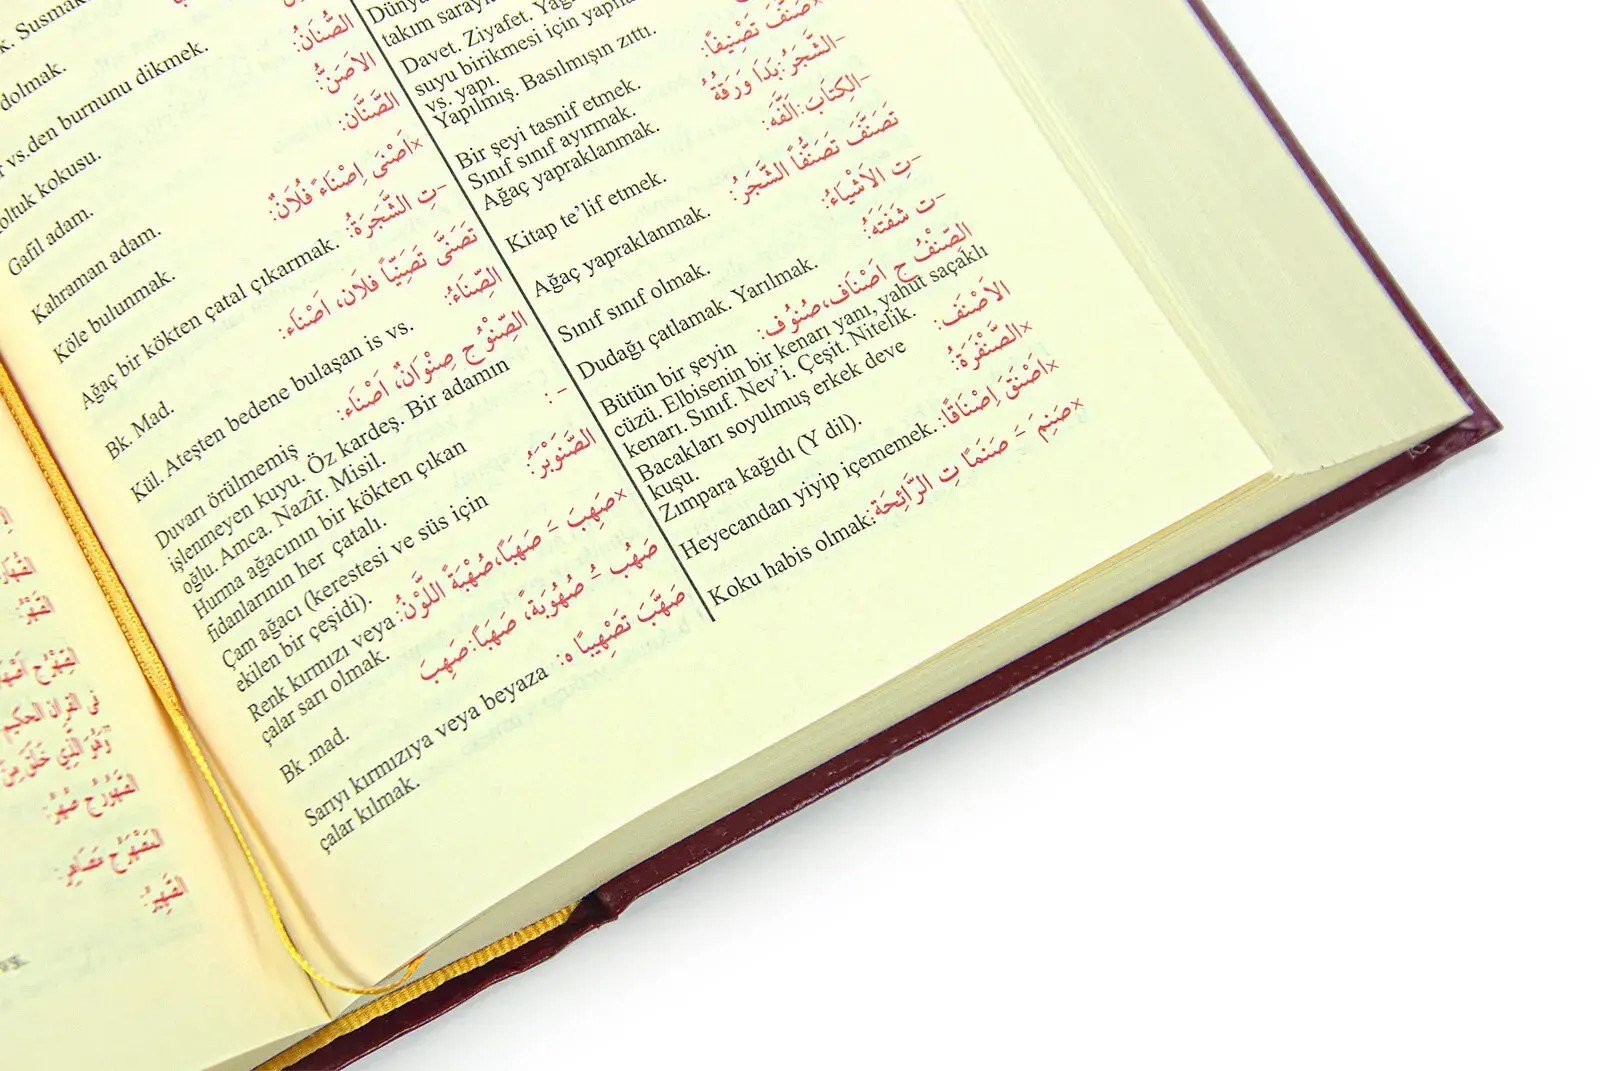 k. Susmak
الصُّنَانُ:
dolmak.
الاَصَنُّ:
vs.den burnunu dikmek.
الصَّنَّان:
koltuk kokusu.
×اَصْنَى اِصْنَاءً فُلَانٌ:
Gafil adam.
Kahraman adam.
Köle bulunmak.
-تِ الشَّجَرَةُ:
Ağaç bir kökten çatal çıkarmak.
تَصَنَّى تَصَنِّيًا فلَان، اَصْنَاء:
Bk. Mad.
الصِّنَاءُ:
Kül. Ateşten bedene bulaşan is vs.
الصِّنْوُ ج صِنْوَانٌ، اَصْنَاء:
Duvarı örülmemiş
işlenmeyen kuyu. Öz kardeş. Bir adamın
oğlu. Amca. Nazîr. Misil.
- :
Hurma ağacının bir kökten çıkan
fidanlarının her çatalı.
الصَّنَوْبَرُ:
Çam ağacı (kerestesi ve süs için
ekilen bir çeşidi).
×صَهِبَ - صَهَبًا،صُهْبَةً اللَّوْنُ:
Renk kırmızı veya
çalar sarı olmak.
صَهُبَ - صُهُوبَةً، صَهَبًا:صَهِبَ
Bk .mad.
صَهَّبَ تَصْهِيبًا ه:
Sarıyı kırmızıya veya beyaza
çalar kılmak.
Dünya
takım sarayla
Davet. Ziyafet.
suyu birikmesi için
vs. yapı.
Yapılmış. Basılmışın zıttı.
×صَنَّفَ تَصْنِيفًا:
Bir şeyi tasnif etmek.
Sınıf sınıf ayırmak.
-الشَّجَرُ:بَدَا وَرَقَهُ
Ağaç yapraklanmak.
-الكِتَابَ:اَلَّفَه:
Kitap te’lif etmek.
تَصَنَّفَ تَصَنُّفًا الشَّجَرُ:
Ağaç yapraklanmak.
-تِ الاَشْيَاءُ:
Sınıf sınıf olmak.
-ت شَفَتَهُ:
Dudağı çatlamak. Yarılmak.
الصِّنْفُ ج اَصْنَاف،صُنُوف:
Bütün bir şeyin
cüzü. Elbisenin bir kenarı yanı, yahut saçaklı
kenarı. Sınıf. Nev’i. Çeşit. Nitelik.
الاَصْنَفُ:
Bacakları soyulmuş erkek deve
kuşu.
×الصَّنْفَرَةُ:
Zımpara kağıdı (Y dil).
×اَصْنَقَ اِصْنَاقًا:
Heyecandan yiyip içememek.
×صَنِمَ - صَنَمًا تِ الرَّائِحَة:
Koku habis olmak.